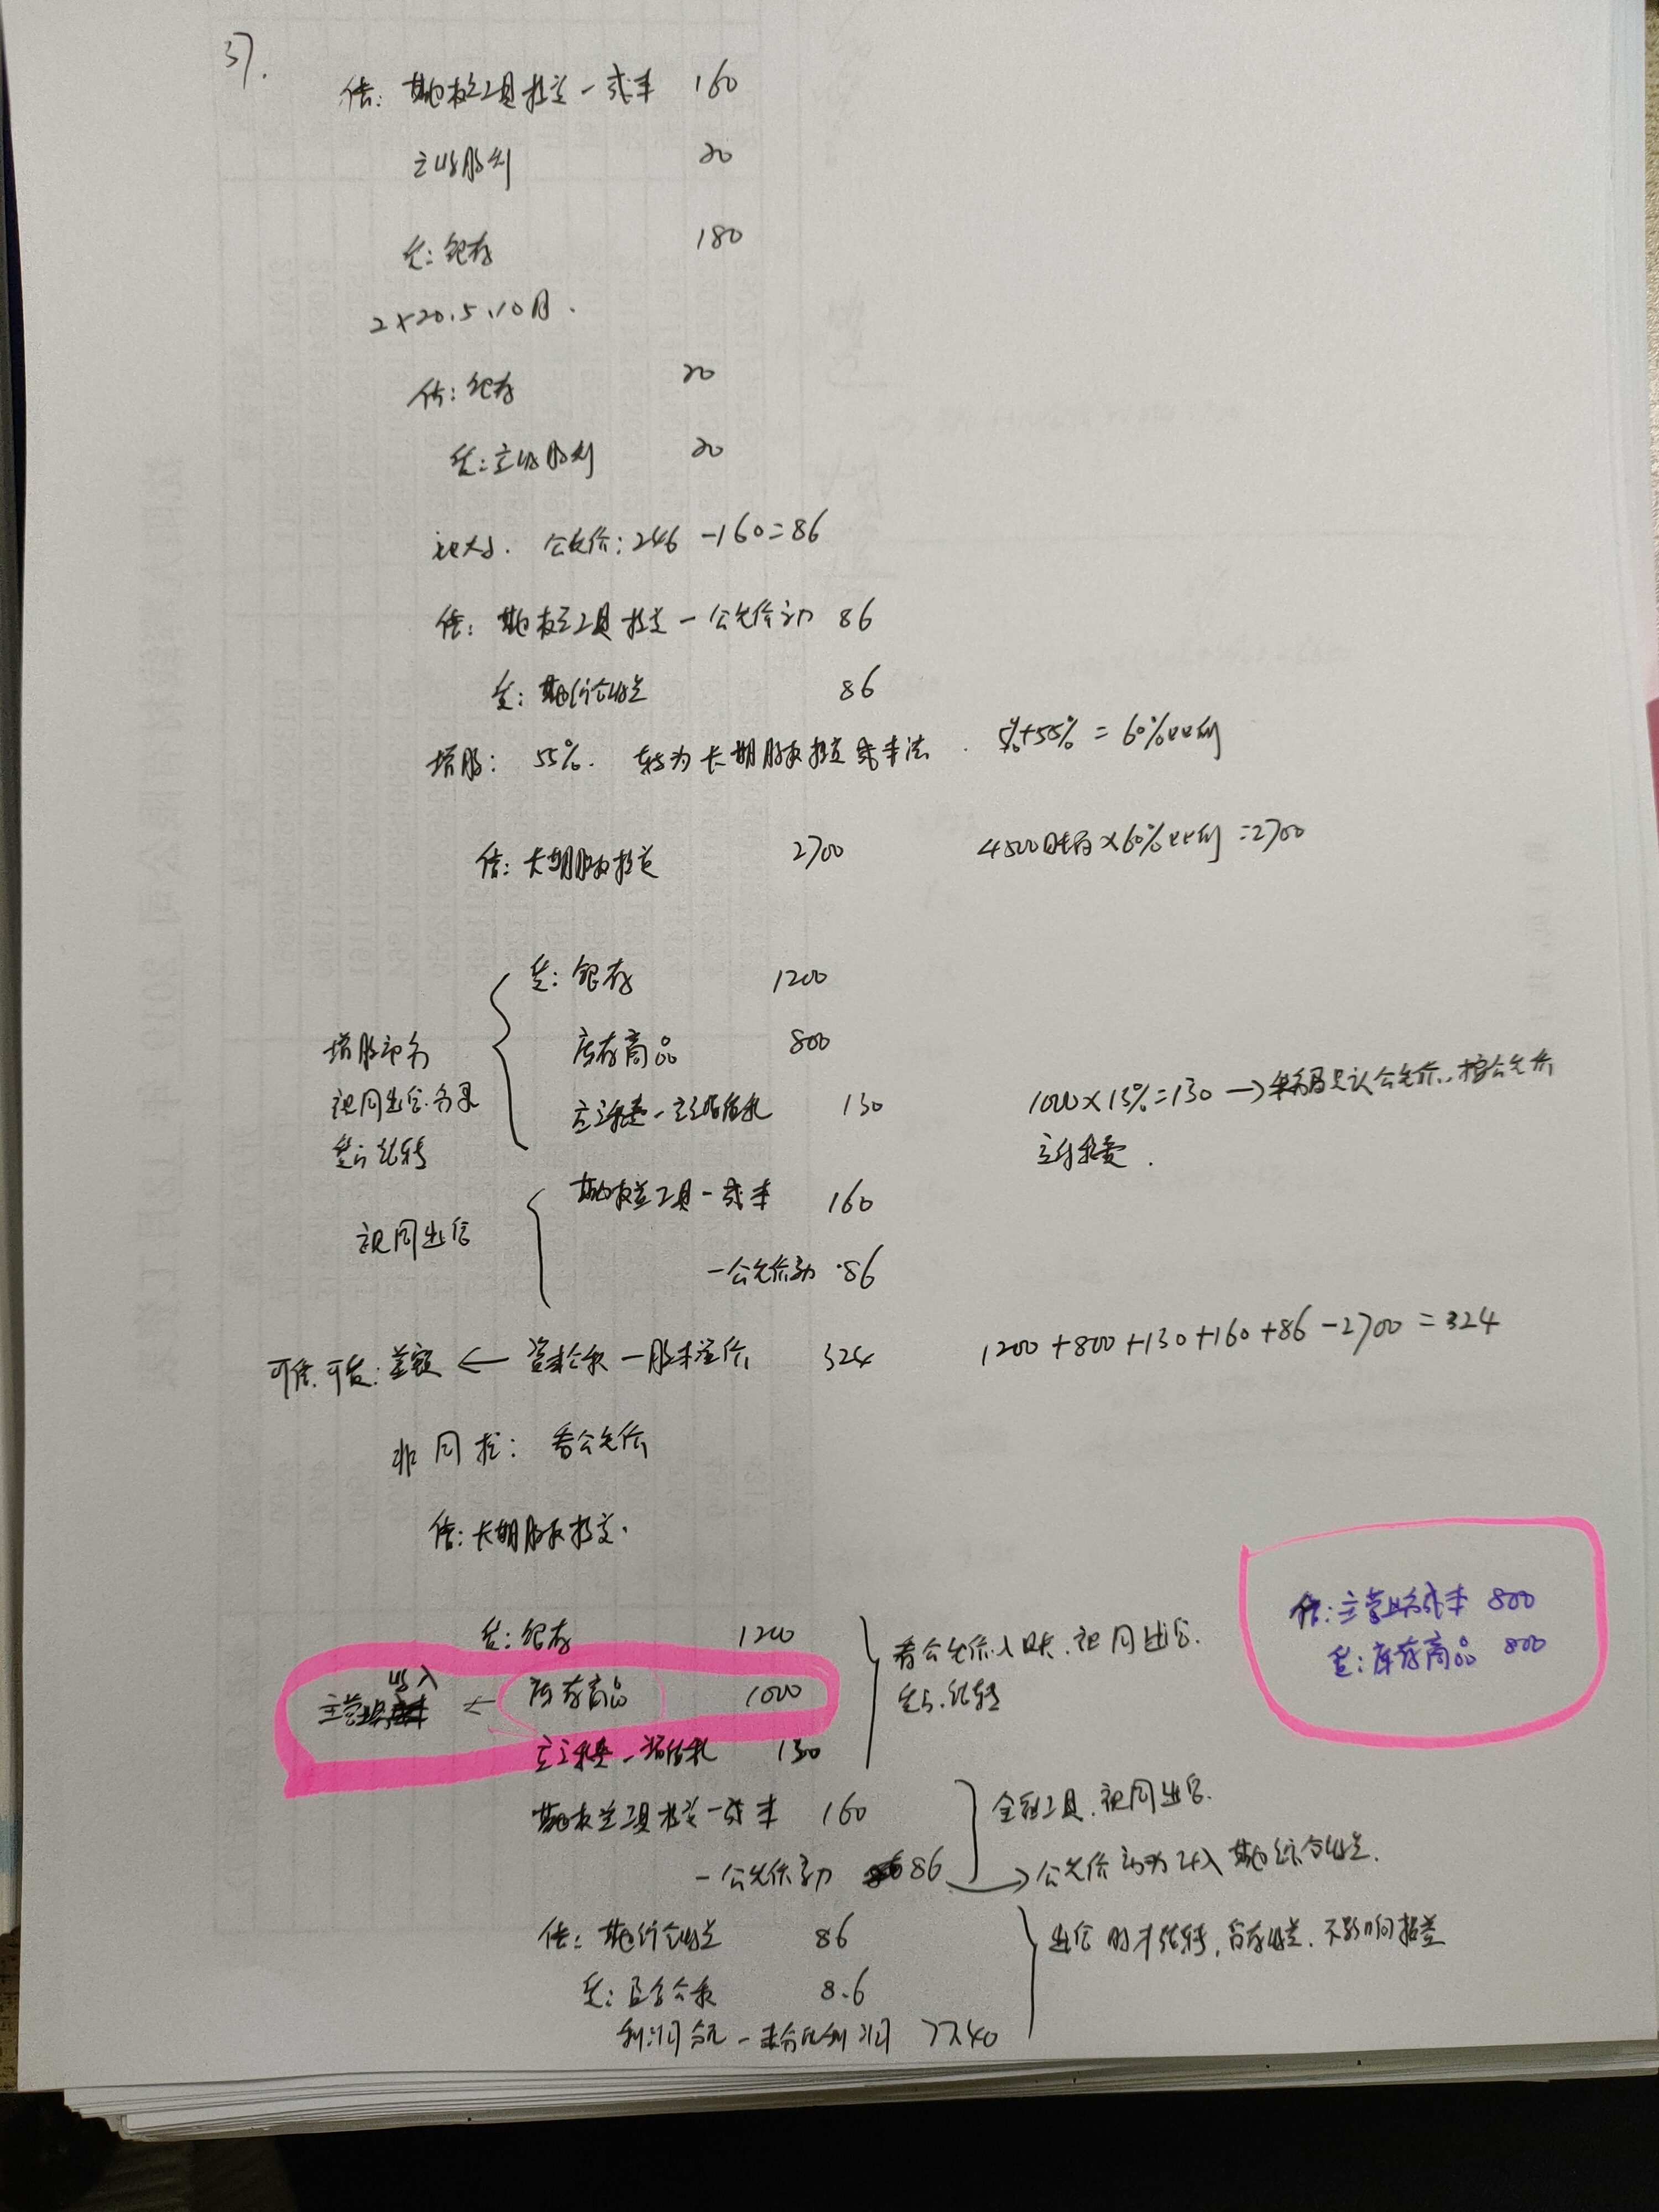 37.
借：其他权益工具投资－成本 160
应收股利 20
贷：银存 180
2×20.5.10日.
借：银存 20
贷：应收股利 20
公允价：246－160＝86
借：其他权益工具投资－公允价变动 86
贷：其他综合收益 86
增股：55%. 转为长期股权投资成本法. 5%+55%＝60%比例
借：长期股权投资 2700 4500×60%比例＝2700
贷：银存 1200
增股部分 库存商品 800
视同出售
贷方结转 应交税费－应交增值税 130 1000×13%＝130→税务局只认公允价.按公允价
应付税费.
视同出售 其他权益工具－成本 160
－公允价变动 86
可借.可贷：差额 ← 资本公积－股本溢价 324 1200+800+130+160+86－2700＝324
非同控：看公允价
借：长期股权投资.
贷：银存 1200 看公允价入账.视同出售.
主营 收入 ← 库存商品 1000 贷方.结转
应交税费－增值税 130
其他权益工具投资－成本 160 金融工具.视同出售.
－公允价变动 86 → 公允价变动计入其他综合收益.
借：其他综合收益 86 出售时才结转,留存收益.不影响损益
贷：盈余公积 8.6
利润分配－未分配利润 77.40
借：主营业务成本 800
贷：库存商品 800